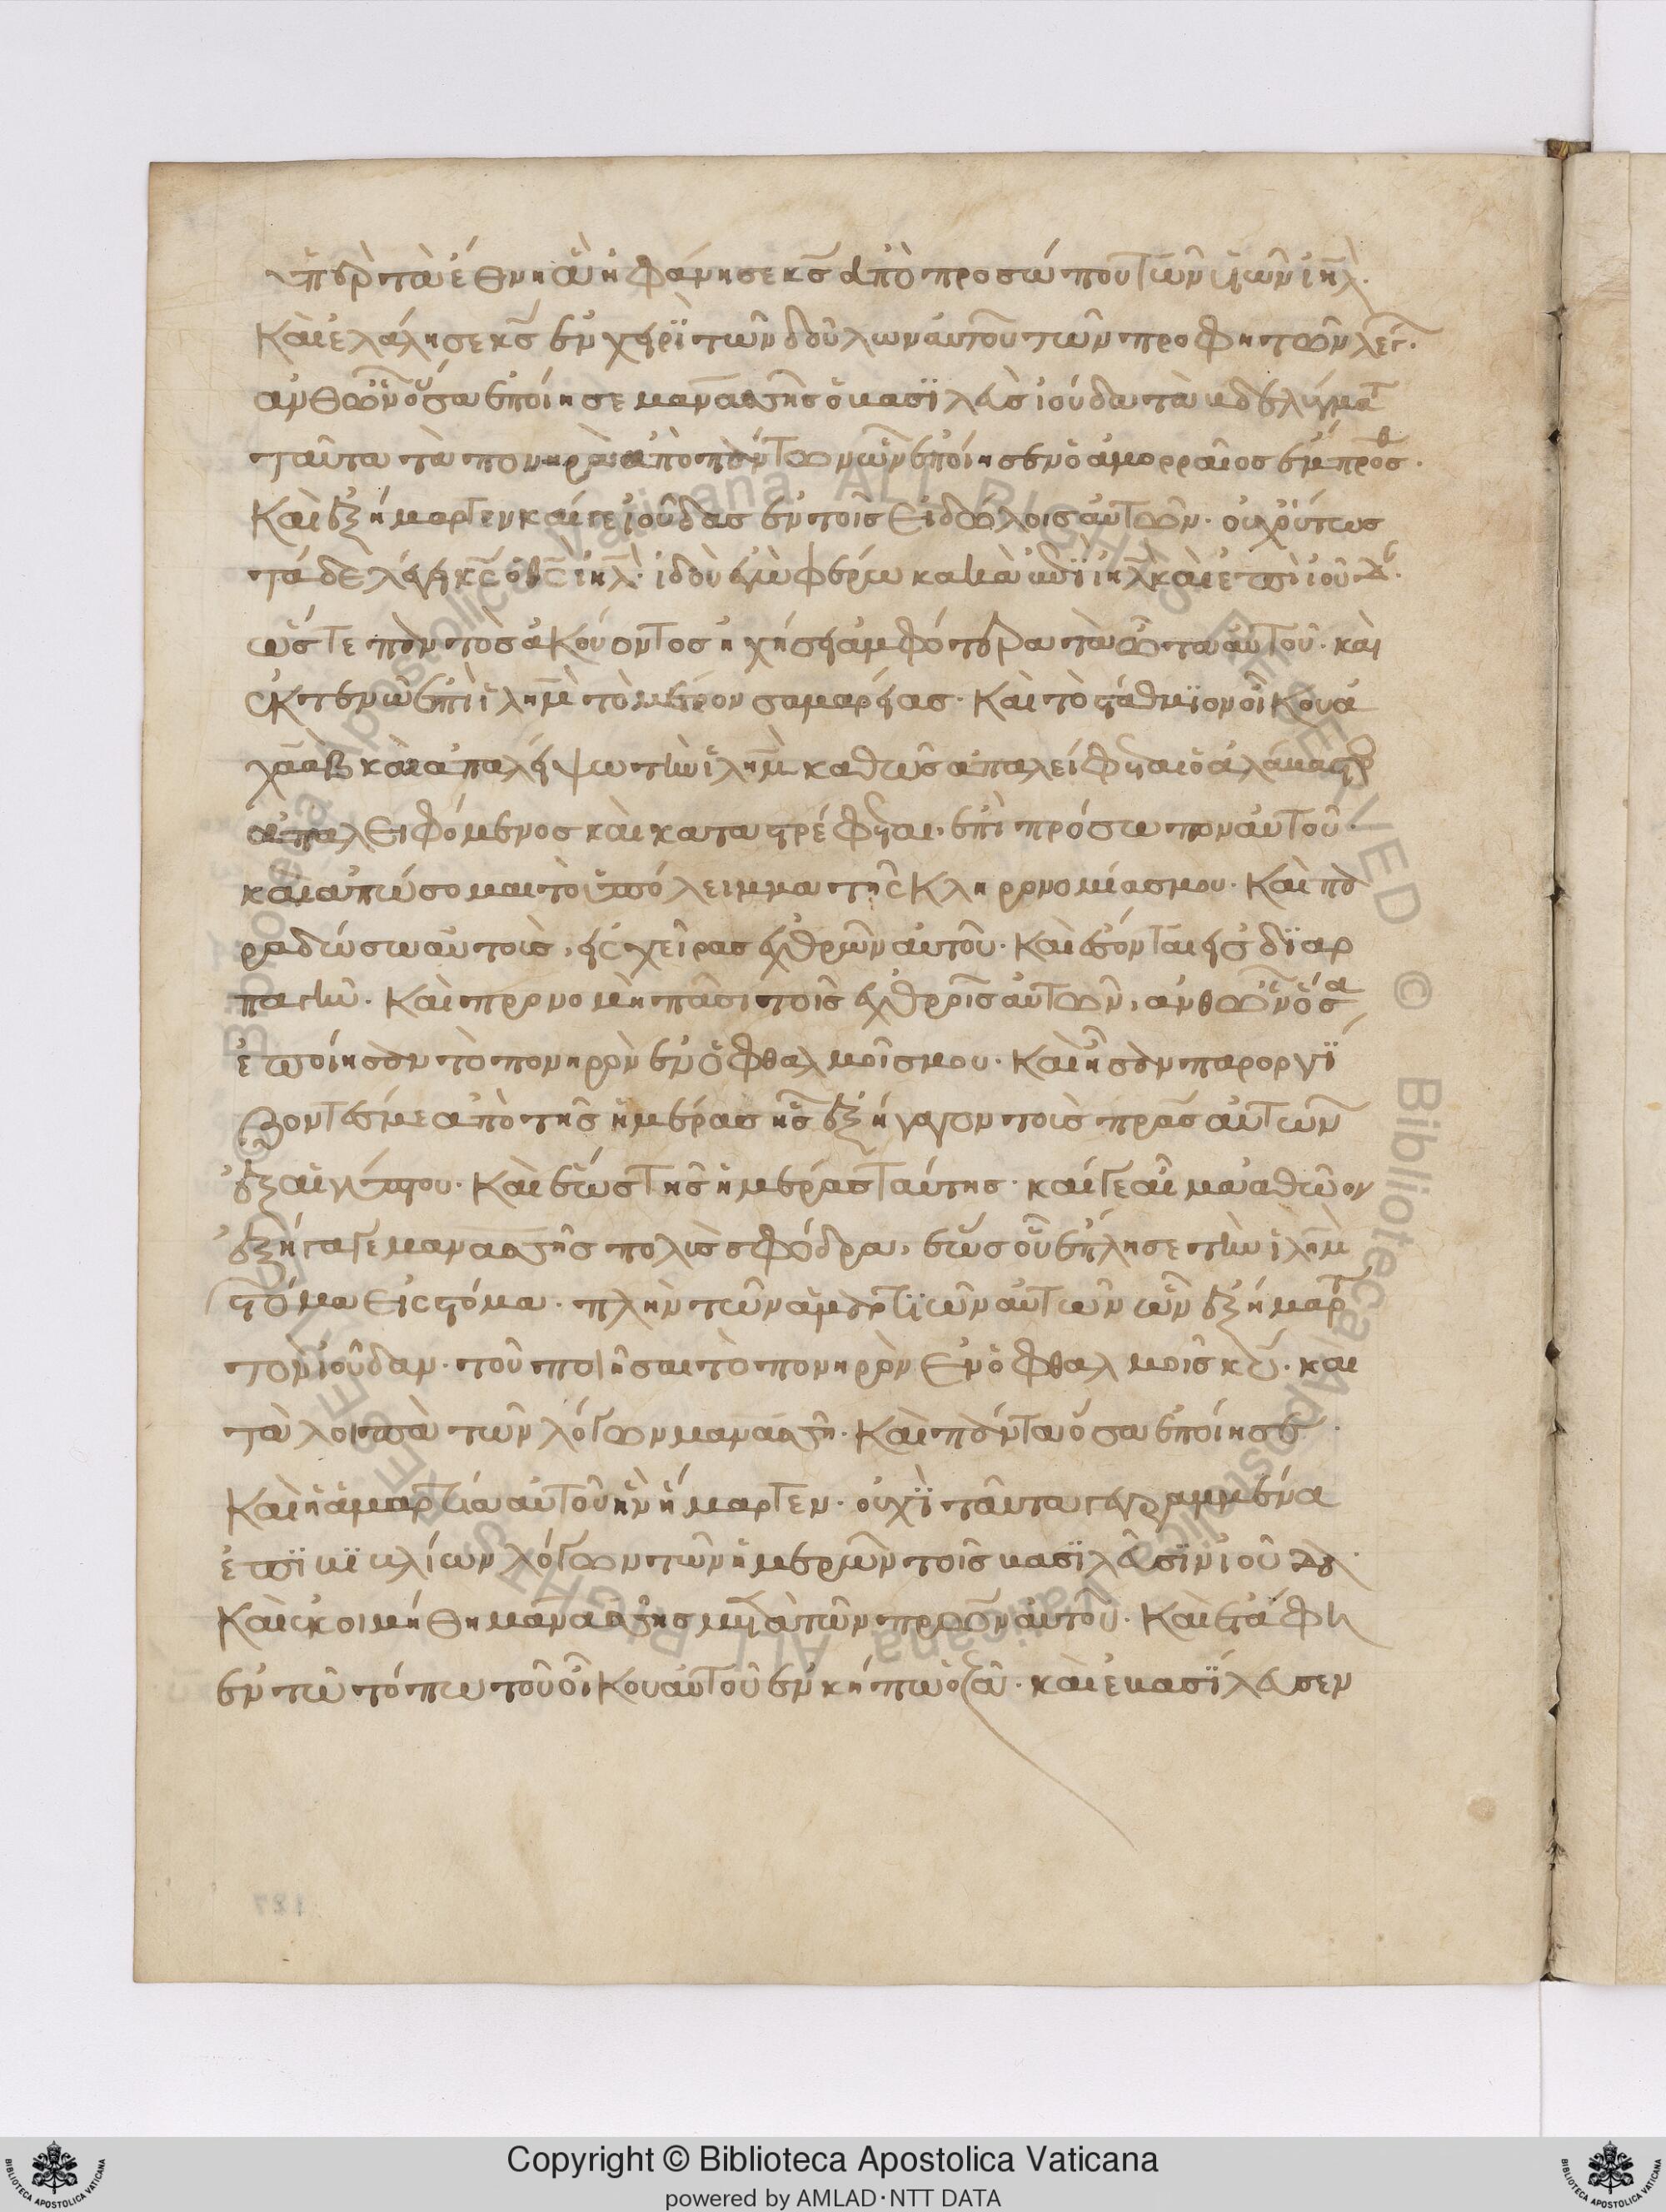 ὑπὲρ τὰ ἔθνη ἃ ἠφάνησε κς ἀπὸ προσώπου τῶν υἱῶν ιηλ.
Καὶ ἐλάλησε κς ἐν χειρὶ τῶν δούλων αὐτοῦ τῶν προφητῶν λεγ.
ἀνθ ὧν ὅσα ἐποίησε μανασσῆς ὁ βασιλεὺς ἰούδα τὰ βδελύγματ
ταῦτα τὰ πονηρὰ ἀπὸ πάντων ὧν ἐποίησεν ὁ ἀμορραῖος ἔμπροσθ.
Καὶ ἐξήμαρτεν καί γε ἰούδας ἐν τοῖς εἰδώλοις αὐτῶν. οὐχ οὕτως
τάδε λέγει κς ὁ θς ιηλ. ἰδοὺ ἐγὼ φέρω κακὰ ἐπὶ ιηλ καὶ ἐπὶ ἰούδα.
ὥστε παντὸς ἀκούοντος ἠχήσει ἀμφότερα τὰ ὦτα αὐτοῦ. καὶ
ἐκτενῶ ἐπὶ ιλημ τὸ μέτρον σαμαρείας. Καὶ τὸ στάθμιον οἴκου ἀ
χαάβ καὶ ἀπαλείψω τὴν ιλημ καθὼς ἀπαλείφεται ὁ ἀλάβαστρο
ἀπαλειφόμενος καὶ καταστρέφεται. ἐπὶ πρόσωπον αὐτοῦ.
καὶ ἀπώσομαι τὸ ὑπόλειμμα τῆς κληρονομίας μου. Καὶ πα
ραδώσω αὐτοὺς, εἰς χεῖρας ἐχθρῶν αὐτοῦ. Καὶ ἔσονται εἰς διαρ
παγὴν. Καὶ προνομὴ πᾶσι τοῖς ἐχθροῖς αὐτῶν, ἀνθ ὧν ὅσα
ἐποίησαν τὸ πονηρὸν ἐν ὀφθαλμοῖς μου. Καὶ ἦσαν παροργί
ζοντές με ἀπὸ τῆς ἡμέρας ἧς ἐξήγαγον τοὺς πρας αὐτῶν
ἐξ αἰγύπτου. Καὶ ἕως τῆς ἡμέρας ταύτης. καί γε αἷμα ἀθῶον
ἐξήγαγε μανασσῆς πολὺς σφόδρα, ἕως οὗ ἔπλησε τὴν ιλημ
στόμα εἰς στόμα. πλὴν τῶν ἁμαρτιῶν αὐτῶν ὧν ἐξήμαρτ
τὸν ἰούδαν. τοῦ ποιῆσαι τὸ πονηρὸν ἐν ὀφθαλμοῖς κυ. καὶ
τὰ λοιπὰ τῶν λόγων μανασσῆ. Καὶ πάντα ὅσα ἐποίησε.
Καὶ ἡ ἁμαρτία αὐτοῦ ἣν ἥμαρτεν. οὐχὶ ταῦτα γεγραμμένα
ἐπὶ βιβλίων λόγων τῶν ἡμερῶν τοῖς βασιλεῦσιν ἰούδα.
Καὶ ἐκοιμήθη μανασσῆς μετὰ τῶν πρων αὐτοῦ. Καὶ ἐτάφη
ἐν τῶ τόπω τοῦ οἴκου αὐτοῦ ἐν κήπω ὀζᾶ. καὶ ἐβασίλευσεν